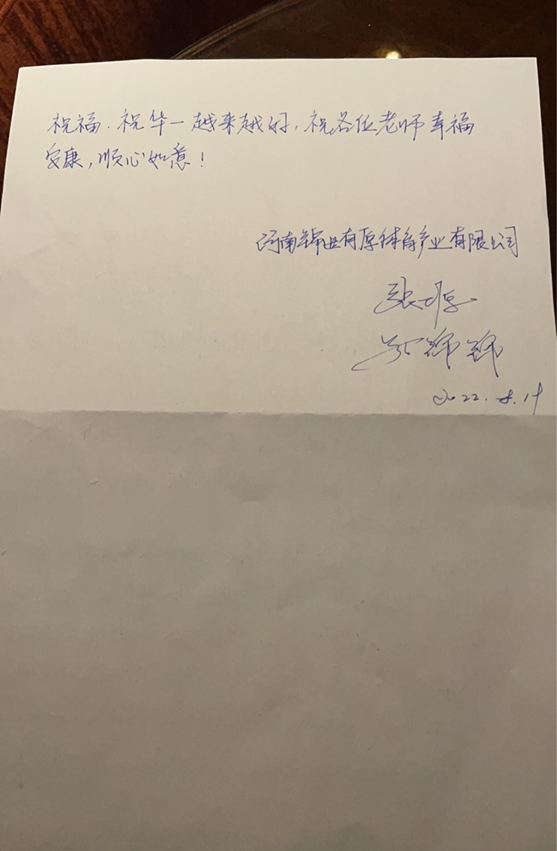 祝福.祝华一越来越好,祝各位老师幸福
安康,顺心如意!
河南锦业有厚体育产业有限公司
张厚
2022.8.19